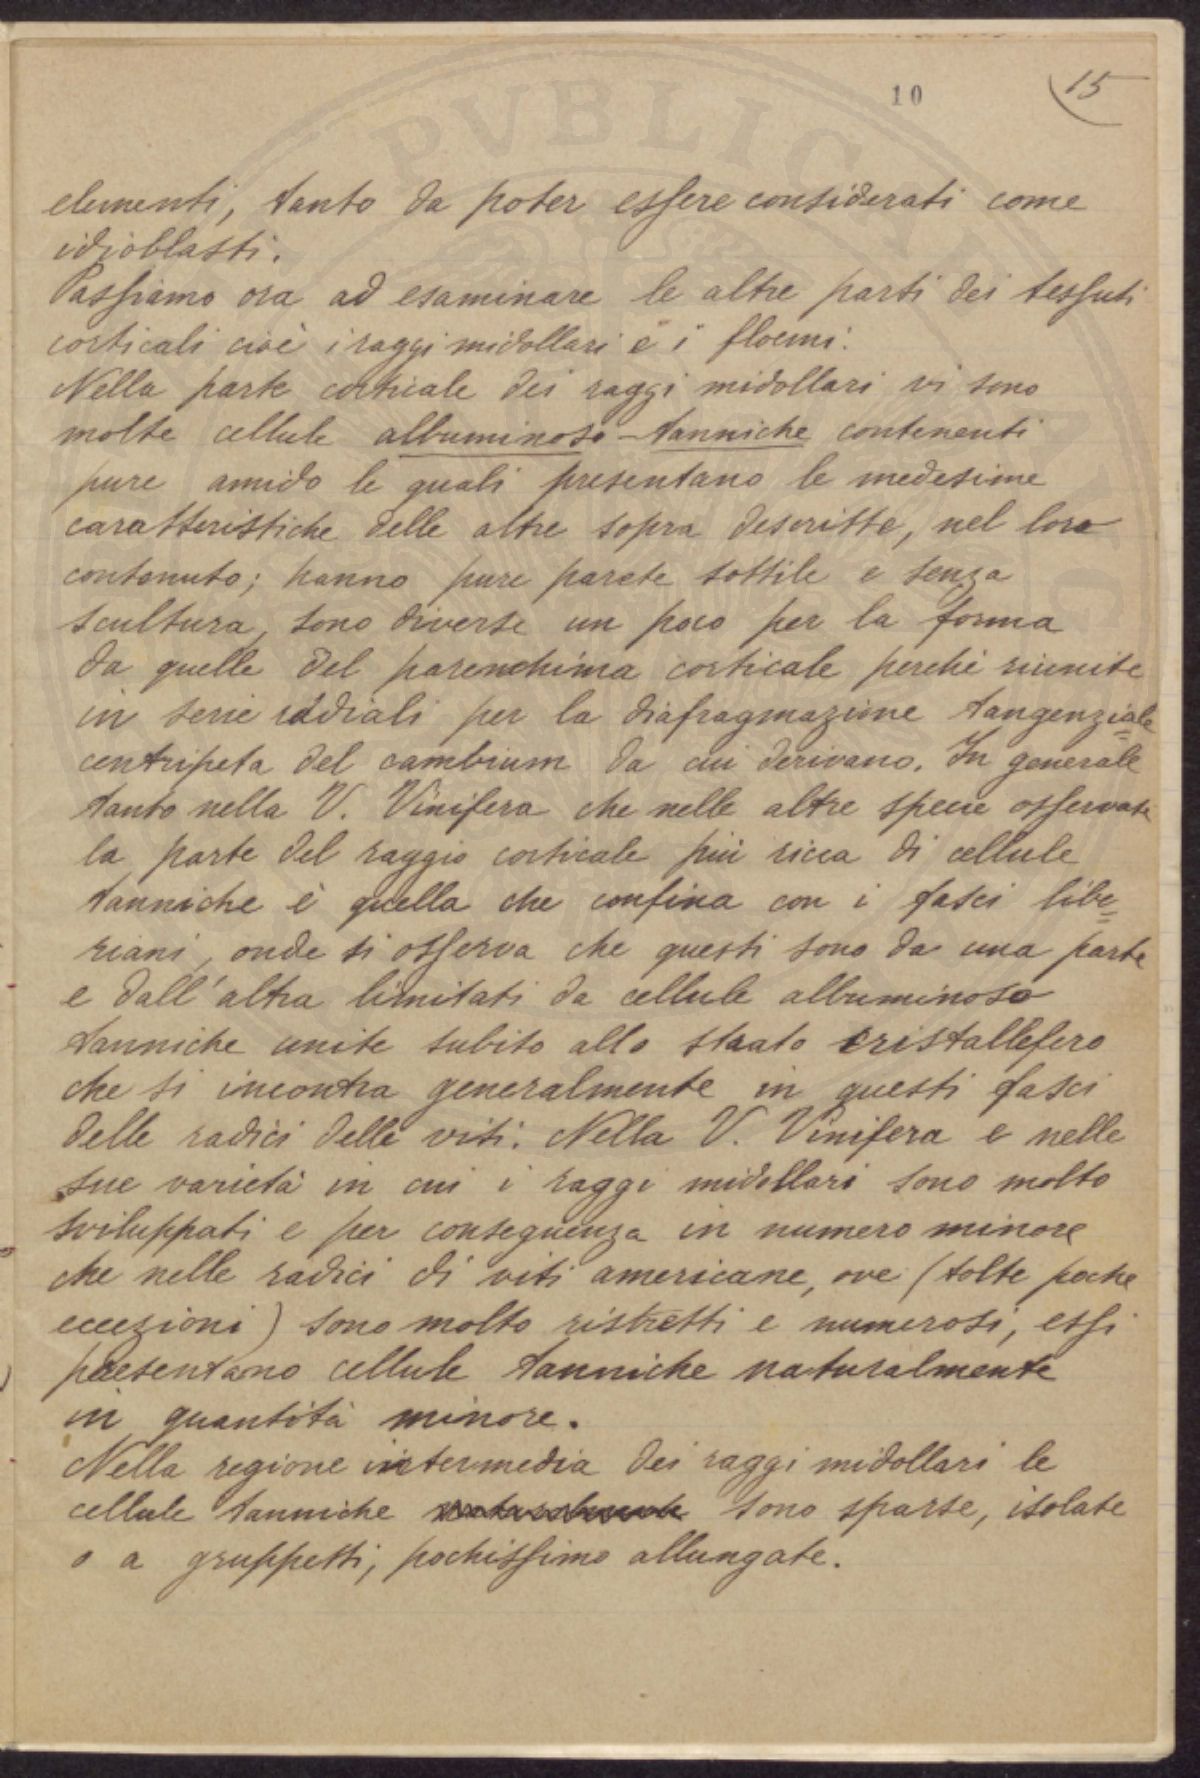 10
15
elementi, tanto da poter essere considerati come
idioblasti.
Passiamo ora ad esaminare le altre parti dei tessuti
corticali cioè i raggi midollari e i floemi.
Nella parte corticale dei raggi midollari vi sono
molte cellule albuminoso-tanniche contenenti
pure amido le quali presentano le medesime
caratteristiche delle altre sopra descritte, nel loro
contenuto; hanno pure parete sottile e senza
scultura, sono diverse un poco per la forma
da quelle del parenchima corticale perchè riunite
in serie radiali per la diafragmazione tangenziale
centripeta del cambium da cui derivano. In generale
tanto nella V. Vinifera che nelle altre specie osservate
la parte del raggio corticale più ricca di cellule
tanniche è quella che confina con i fasci libe=
riani, onde si osserva che questi sono da una parte
e dall'altra limitati da cellule albuminoso
tanniche unite subito allo strato cristallefero
che si incontra generalmente in questi fasci
delle radici delle viti. Nella V. Vinifera e nelle
sue varietà in cui i raggi midollari sono molto
sviluppati e per conseguenza in numero minore
che nelle radici di viti americane, ove (tolte poche
eccezioni) sono molto ristretti e numerosi, essi
presentano cellule tanniche naturalmente
in quantità minore.
Nella regione intermedia dei raggi midollari le
cellule tanniche sono sparse, isolate
o a gruppetti, pochissimo allungate.
PVBLIC